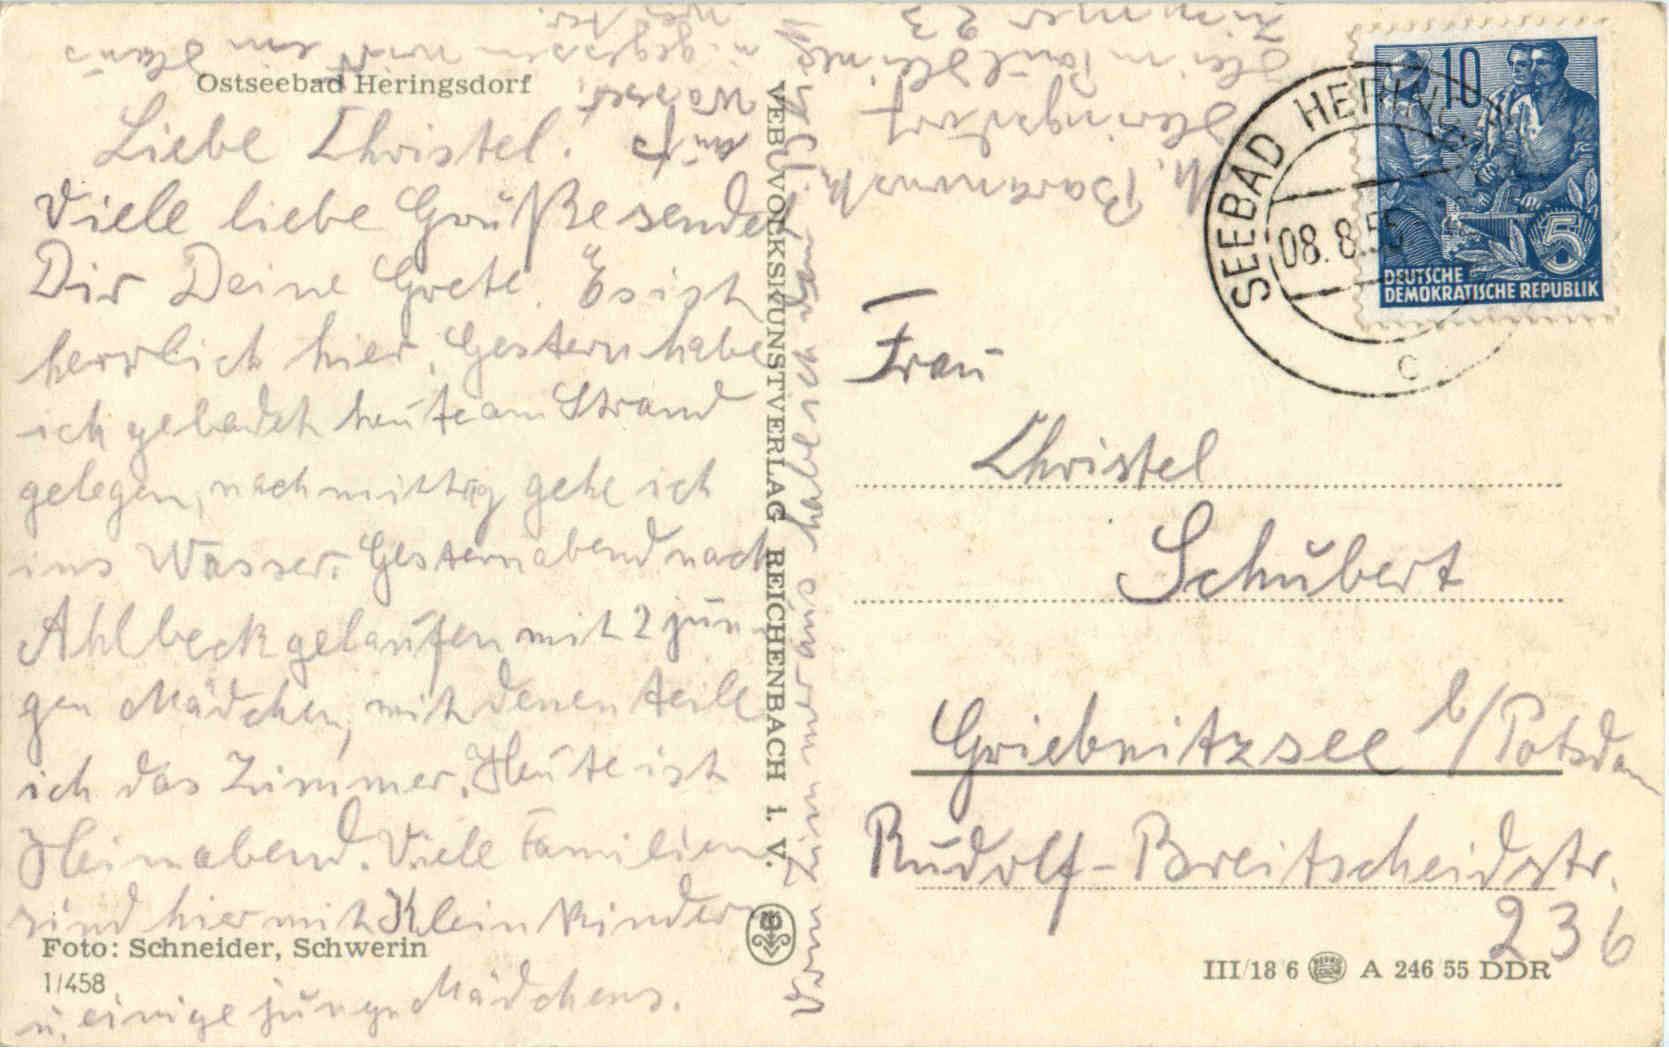 Ostseebad Heringsdorf
Liebe Christel.
Viele liebe Grüße sendet
Dir Deine Grete. Es ist
herrlich hier. Gestern habe
ich gebadet heute am Strand
gelegen, nachmittag gehe ich
ins Wasser. Gestern abend nach
Ahlbeck gelaufen mit 2 jun-
gen Mädchen, mit denen teile
ich das Zimmer. Heute ist
Heimabend. Viele Familien
sind hier mit Kleinkindern
u. einige junge Mädchens.
Foto: Schneider, Schwerin
1/458
auf
Wasser.
wird im Haus
VEB VOLKSKUNSTVERLAG REICHENBACH i. V.
Heringsdorf
Heim
Zimmer 23
SEEBAD HERINGSDORF
08.8.55
c
10
5
DEUTSCHE
DEMOKRATISCHE REPUBLIK
Frau
Christel
Schubert
Griebnitzsee b/Potsdam
Rudolf-Breitscheidstr.
236
III/18 6 A 246 55 DDR